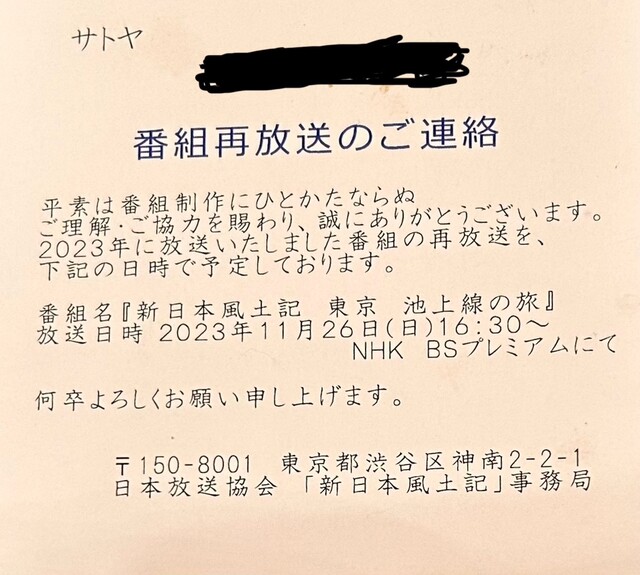 サトヤ
番組再放送のご連絡
平素は番組制作にひとかたならぬ
ご理解・ご協力を賜わり、誠にありがとうございます。
2023年に放送いたしました番組の再放送を、
下記の日時で予定しております。
番組名『新日本風土記　東京　池上線の旅』
放送日時 2023年11月26日(日)16:30～
NHK　BSプレミアムにて
何卒よろしくお願い申し上げます。
〒150-8001　東京都渋谷区神南2-2-1
日本放送協会　「新日本風土記」事務局